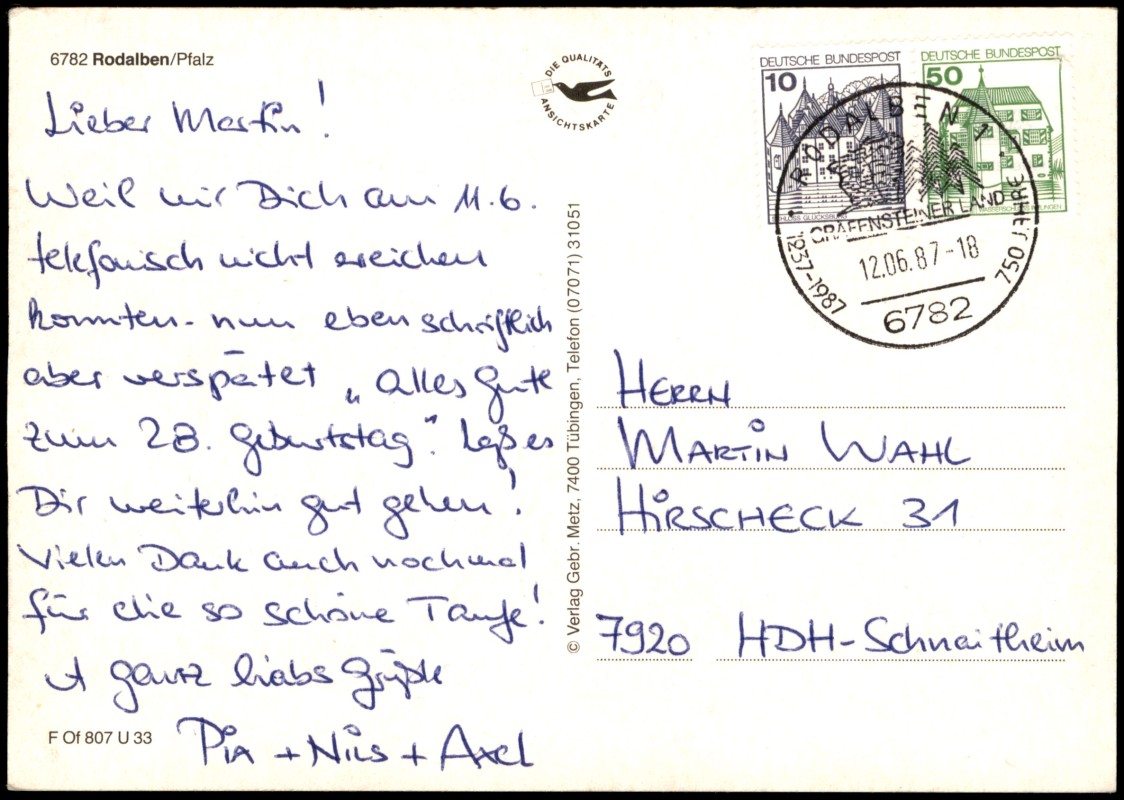 6782 Rodalben/Pfalz
Lieber Martin!
Weil wir Dich am 11.6.
telefonisch nicht erreichen
konnten - nun eben schriftlich
aber verspätet „Alles Gute
zum 28. Geburtstag". Laß es
Dir weiterhin gut gehen!
Vielen Dank auch nochmal
für die so schöne Taufe!
ganz liebe Grüße
Pia + Nils + Axel
F Of 807 U 33
DIE QUALITÄTS
ANSICHTSKARTE
© Verlag Gebr. Metz, 7400 Tübingen, Telefon (07071) 31051
DEUTSCHE BUNDESPOST
10
SCHLOSS GLÜCKSBURG
DEUTSCHE BUNDESPOST
50
RODALBEN 1
GRÄFENSTEINER LAND
1237-1987
750 JAHRE
12.06.87-18
6782
HERRN
MARTIN WAHL
HIRSCHECK 31
7920 HDH-Schnaitheim